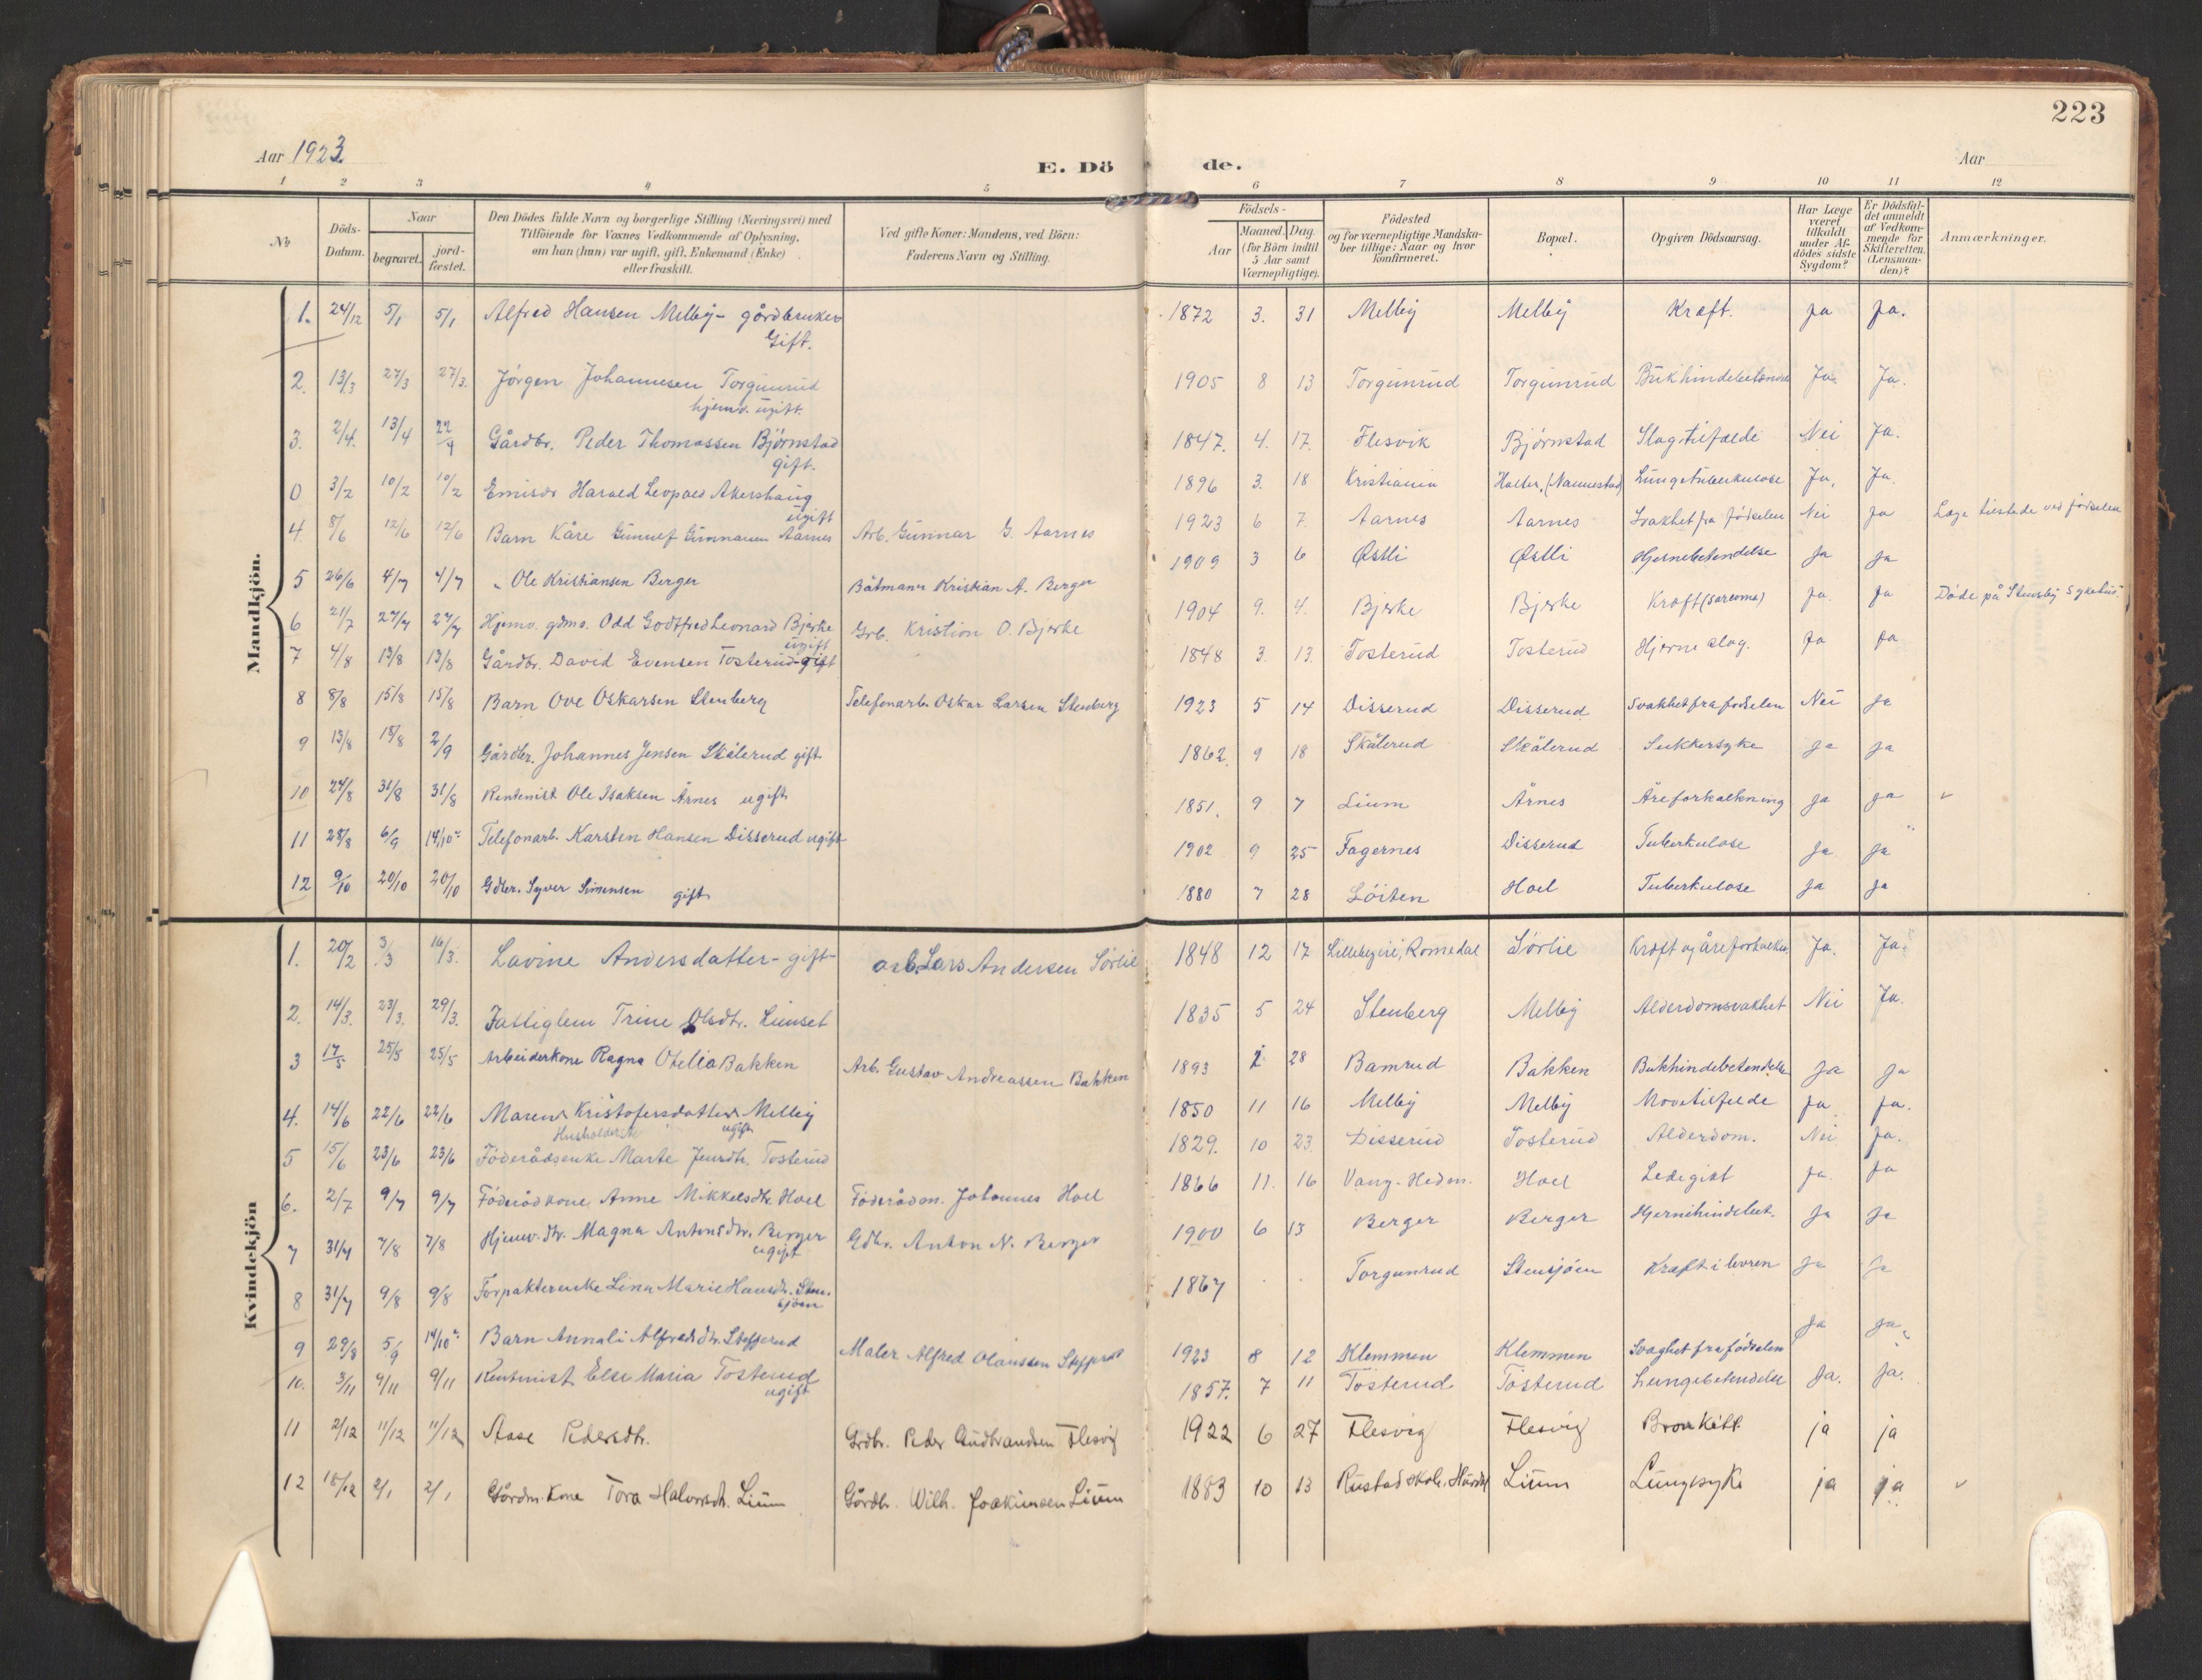 223
Aar 1923. E. Dö de. Aar
1 2 3 4 5 6 7 8 9 10 11 12
No Döds-Datum. Naar begravet. jord-fæstet. Den Dödes fulde Navn og borgerlige Stilling (Næringsvei) med Tilföiende for Voxnes Vedkommende af Oplysning, om han (hun) var ugift, gift, Enkemand (Enke) eller fraskilt. Ved gifte Koner: Mandens, ved Börn: Faderens Navn og Stilling. Födsels- Aar Maaned. Dag. (for Börn indtil 5 Aar samt Værnepligtige). Födested og for værnepligtige Mandskaber tillige: Naar og hvor konfirmeret. Bopæl. Opgiven Dödsaarsag. Har Læge været tilkaldt under Afdödes sidste Sygdom? Er Dödsfaldet anmeldt af Vedkommende for Skifteretten. (Lensmanden)? Anmærkninger.
Mandkjön.
1. 24/12 5/1 5/1 Alfred Hansen Melby - gårdbruker Gift. 1872 3. 31 Melby Melby Kræft. ja ja.
2. 13/3 27/3 27/3. Jörgen Johannesen Torgunrud hjemv. ugift. 1905 8 13 Torgunrud Torgunrud Ja. Ja.
3. 2/4. 13/4 22/4 Gårdbr. Peder Thomassen Björnstad gift. 1847. 4. 17. Flesvik Björnstad Slagtilfælde Nei Ja.
0 3/2 10/2 10/2 Harald Leopold Akershaug ugift 1896 3. 18 Kristiania (Nannestad) Lungetuberkulose Ja, Ja.
4. 8/6 12/6 12/6 Barn Kåre Aarnes Arb. Gunnar G. Aarnes 1923 6 7. Aarnes Aarnes Svakhet fra födselen Nei ja Læge tilstede ved födselen
5 26/6 4/7 4/7 " Ole Kristiansen Berger Båtmann Kristian A. Berger 1909 3 6 Østli Østli Hjernebetendelse Ja Ja
6 21/7 27/7 27/7 Hjemv. gdms. Odd Godtfred Leonard Bjerke ugift Grb. Kristian O. Bjerke 1904 9. 4. Bjerke Bjerke Kræft (sarcoma) Ja. Ja Döde på Stensby Sykehus.
7 4/8 13/8 13/8 Gårdbr. David Evensen Tosterud - gift 1848 3. 13. Tosterud Tosterud Hjerneslag. Ja Ja
8 8/8 15/8 15/8 Barn Ove Oskarsen Stenberg Telefonarb. Oskar Larsen Stenberg 1923 5 14 Disserud Disserud Svakhet fra födselen Nei Ja
9 13/8 18/8 2/9 Gårdbr. Johannes Jensen Skålerud gift 1862. 9 18 Skålerud Skålerud Sukkersyke Ja Ja
10 24/8 31/8 31/8 Rentenist Ole Isaksen Årnes ugift 1851. 9 7 Lium Årnes Åreforkalkning Ja Ja
11 28/8 6/9 14/10 Telefonarb. Karsten Hansen Disserud ugift 1902 9 25 Fagernes Disserud Tuberkulose Ja Ja
12 9/10 20/10 20/10 Gdbr. Syver Simensen gift 1880 7 28 Löiten Hoel Tuberkulose Ja Ja
Kvindekjön
1. 20/2 3/3 16/3. Lavine Andersdatter - gift - arb. Lars Andersen Sörlie 1848 12 17 Romedal Sörlie Kræft og åreforkalkn. Ja. Ja.
2. 14/3. 23/3. 29/3. Fattiglem Trine Olsdtr. Linset 1835 5 24 Stenberg Melby Alderdomsvakhet Nei Ja.
3 17/5 25/5 25/5 Arbeiderkone Ragna Otelia Bakken Arb. Gustav Andreassen Bakken 1893 28 Bamrud Bakken Bukhindebetendelse Ja Ja
4. 14/6 22/6 22/6 Maren Kristofersdatter Melby Husholderske ugift 1850 11 16 Melby Melby Ja Ja.
5 15/6 23/6 23/6 Föderådsenke Marte Jensdtr. Tosterud 1829. 10 23. Disserud Tosterud Alderdom. Nei Ja.
6. 2/7 9/7 9/7 Föderådkone Anne Mikkelsdtr. Hoel Föderådm. Johannes Hoel 1866 11. 16 Vang. Hedm. Hoel Ledegigt Ja. Ja
7 31/7 7/8 7/8 Hjemv. dtr. Magna Antonsdtr. Berger ugift Gdbr. Anton N. Berger 1900 6 13 Berger Berger Hjernehindebet. Ja Ja
8 31/7 9/8 9/8 Forpakterenke Lina Marie Hansdtr. Stensjöen 1867 . . Torgunrud Stensjöen Kræft i levren Ja Ja
9 29/8 5/9 14/10 Barn Annali Alfredsdtr. Maler Alfred Olaussen 1923 8 12 Klemmen Klemmen Svaghet fra födselen Ja Ja
10. 3/11 9/11 9/11 Rentenist Else Maria Tosterud ugift 1857. 7 11 Tosterud Tosterud Lungebetendelse Ja. Ja.
11 2/12 11/12 11/12 Aase Pedersdtr. Grdbr. Peder Gudbrandsen Flesvig 1922 6 27 Flesvig Flesvig Bronkitt ja ja
12 18/12 2/1 2/1 Gårdm. Kone Tora Halvorsdt. Lium Gårdbr. Wilh. Joakimsen Lium 1883 10 13 Rustad skole, Hurdal Lium Lungesyke ja ja